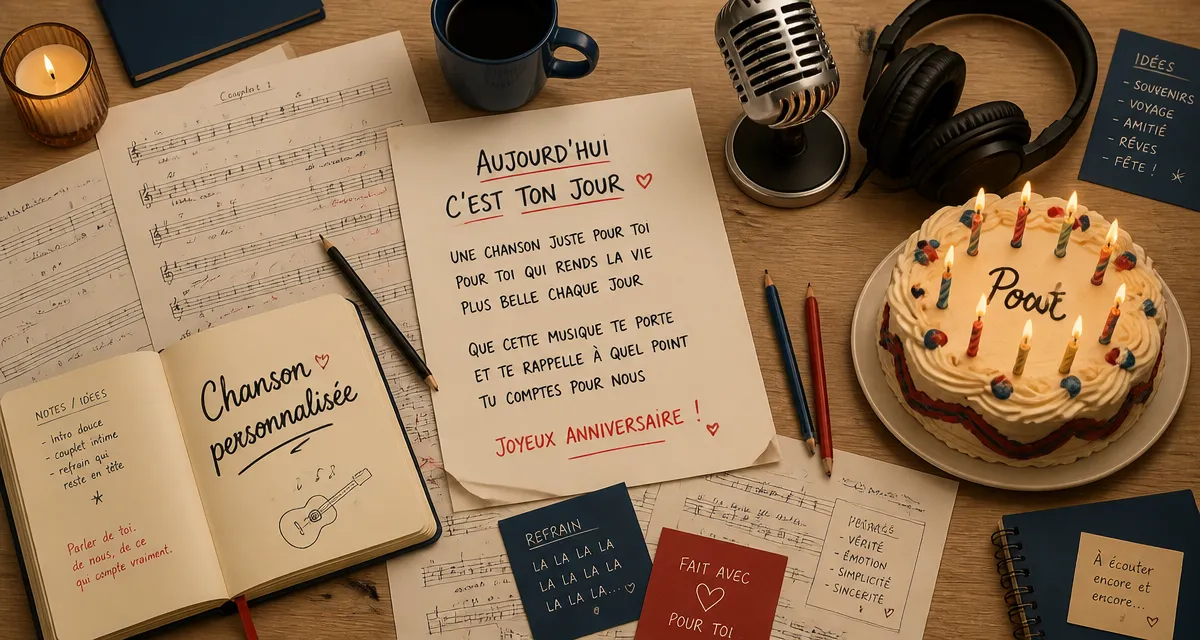 Couplet 1
AUJOURD'HUI
C'EST TON JOUR
UNE CHANSON JUSTE POUR TOI
POUR TOI QUI RENDS LA VIE
PLUS BELLE CHAQUE JOUR
QUE CETTE MUSIQUE TE PORTE
ET TE RAPPELLE À QUEL POINT
TU COMPTES POUR NOUS
JOYEUX ANNIVERSAIRE !
IDÉES
- SOUVENIRS
- VOYAGE
- AMITIÉ
- RÊVES
- FÊTE !
NOTES / IDÉES
- Intro douce
- couplet intime
- refrain qui
reste en tête
Parler de toi.
de nous, de ce
qui compte vraiment.
Chanson
personnalisée
REFRAIN
LA LA LA LA
LA LA LA LA
LA LA LA...
FAIT AVEC
POUR TOI
- VÉRITÉ
- ÉMOTION
- SIMPLICITÉ
- SINCERITÉ
À écouter
encore et
encore...